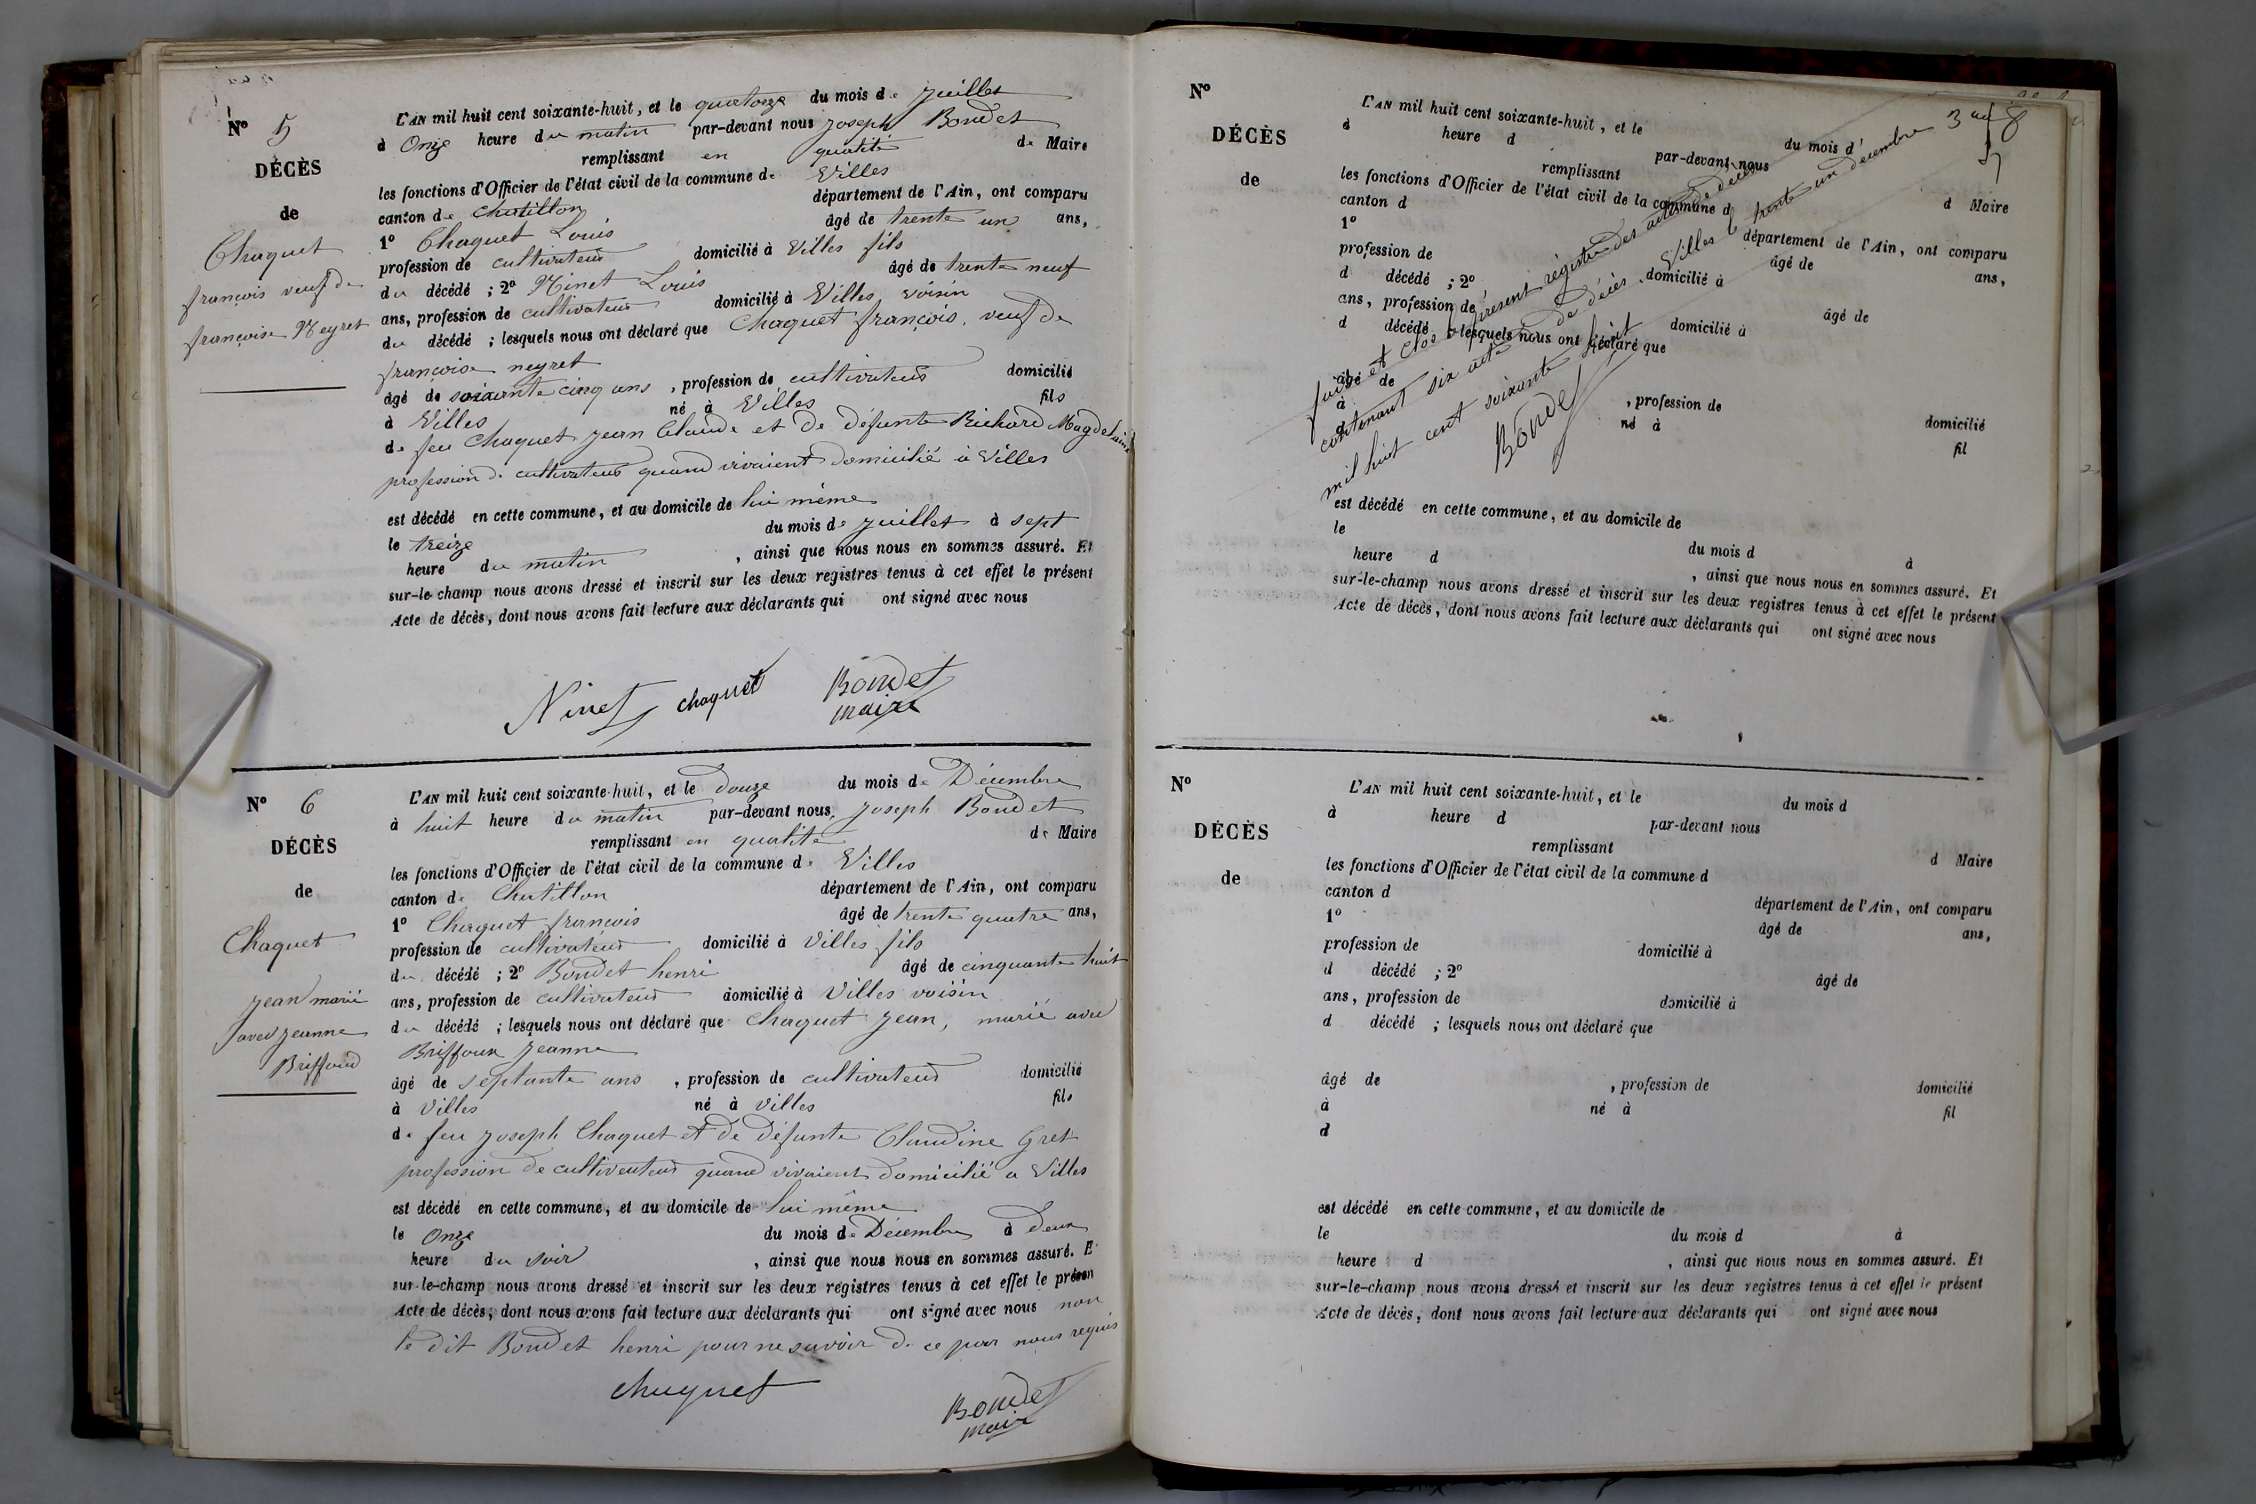 Nº 5
DÉCÈS
de
Chaquet
françois veuf de
françoise Neyret
L'AN mil huit cent soixante-huit, et le quatorze du mois de juillet
à Onze heure du matin par-devant nous joseph Boudet
remplissant en qualité de Maire
les fonctions d'Officier de l'état civil de la commune de Villes
canton de Chatillon département de l'Ain, ont comparu
1º Chaquet Louis âgé de trente un ans,
profession de cultivateur domicilié à Villes fils
du décédé ; 2º Ninet Louis âgé de trente neuf
ans, profession de cultivateur domicilié à Villes, voisin
du décédé ; lesquels nous ont déclaré que Chaquet françois, veuf de
françoise neyret
âgé de soixante cinq ans , profession de cultivateur domicilié
à Villes né à Villes fils
de feu Chaquet jean Claude et de défunte Richard Magdelaine
profession de cultivateur quand vivaient domicilié à Villes
est décédé en cette commune, et au domicile de lui même
le treize du mois de juillet à sept
heure du matin , ainsi que nous nous en sommes assuré. Et
sur-le champ nous avons dressé et inscrit sur les deux registres tenus à cet effet le présent
Acte de décès, dont nous avons fait lecture aux déclarants qui ont signé avec nous
Ninet chaquet Boudet
maire
Nº 6
DÉCÈS
de
Chaquet
jean marié
avec jeanne
Briffoud
L'AN mil huit cent soixante-huit, et le Douze du mois de Décembre
à huit heure du matin par-devant nous, joseph Boudet
remplissant en qualité de Maire
les fonctions d'Officier de l'état civil de la commune de Villes
canton de Chatillon département de l'Ain, ont comparu
1º Chaquet françois âgé de trente quatre ans,
profession de cultivateur domicilié à Villes fils
du décédé ; 2º Boudet henri âgé de cinquante huit
ans, profession de cultivateur domicilié à Villes voisin
du décédé ; lesquels nous ont déclaré que Chaquet jean, marié avec
Briffoux jeanne
âgé de septante ans , profession de cultivateur domicilié
à Villes né à Villes fils
de feu joseph Chaquet et de défunte Claudine Gret
profession de cultivateur quand vivaient domicilié a Villes
est décédé en cette commune, et au domicile de lui même
le Onze du mois de Décembre à Deux
heure du soir , ainsi que nous nous en sommes assuré. E
sur-le-champ nous avons dressé et inscrit sur les deux registres tenus à cet effet le présen
Acte de décès, dont nous avons fait lecture aux déclarants qui ont signé avec nous non
le dit Boudet henri pour ne savoir de ce par nous requis
chaquet
Boudet
maire
Nº
DÉCÈS
de
L'AN mil huit cent soixante-huit, et le du mois d
à heure d par-devant nous
remplissant d Maire
les fonctions d'Officier de l'état civil de la commune d
canton d département de l'Ain, ont comparu
1º âgé de ans,
profession de domicilié à
d décédé ; 2º âgé de
ans, profession de domicilié à
d décédé ; lesquels nous ont déclaré que
âgé de , profession de domicilié
à né à fil
d
fait et clos le présent registre des actes de décès
contenant six acte de décès. Villes le trente un décembre
mil huit cent soixante huit
Boudet
est décédé en cette commune, et au domicile de
le du mois d à
heure d , ainsi que nous nous en sommes assuré. Et
sur-le-champ nous avons dressé et inscrit sur les deux registres tenus à cet effet le présent
Acte de décès, dont nous avons fait lecture aux déclarants qui ont signé avec nous
Nº
DÉCÈS
de
L'AN mil huit cent soixante-huit, et le du mois d
à heure d par-devant nous
remplissant d Maire
les fonctions d'Officier de l'état civil de la commune d
canton d département de l'Ain, ont comparu
1º âgé de ans,
profession de domicilié à
d décédé ; 2º âgé de
ans, profession de domicilié à
d décédé ; lesquels nous ont déclaré que
âgé de , profession de domicilié
à né à fil
d
est décédé en cette commune, et au domicile de
le du mois d à
heure d , ainsi que nous nous en sommes assuré. Et
sur-le-champ nous avons dressé et inscrit sur les deux registres tenus à cet effet le présent
Acte de décès, dont nous avons fait lecture aux déclarants qui ont signé avec nous